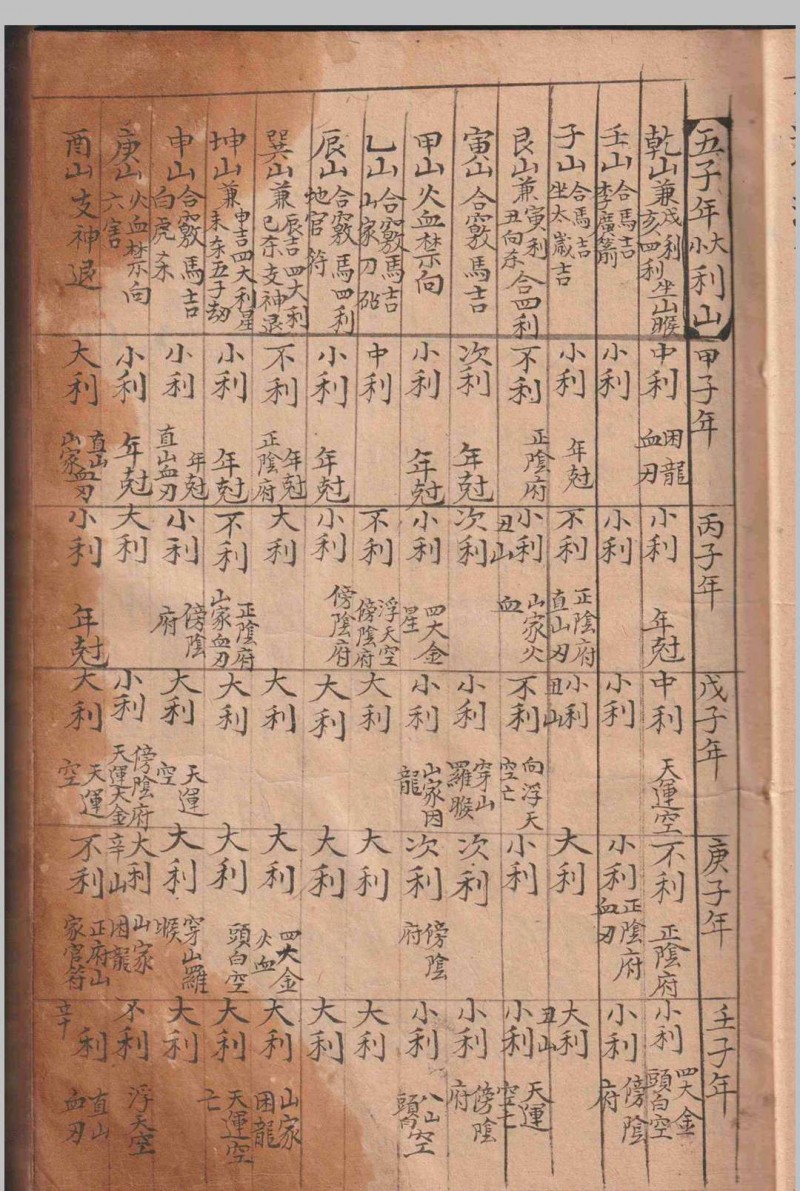 五子年大小利山 甲子年 丙子年 戊子年 庚子年 壬子年
乾山兼戌利亥四利坐山睺 中利 困龍血刃 小利 年尅 中利 天運空 不利 正陰府 小利 四大金頭白空
壬山合馬吉李廣箭 小利 小利 小利 小利 正陰府血刃 小利 傍陰府
子山合馬吉坐太歲吉 小利 年尅 不利 正陰府直山刃 小利丑山 大利 大利
艮山兼寅利丑向杀合四利 不利 正陰府 小利丑山 山家火血 不利 向浮天空亡 小利 小利丑山 天運空亡
寅山合竅馬吉 次利 年尅 次利 小利 穿山羅睺 次利 小利 傍陰府
甲山火血禁向 小利 年尅 小利 四大金星 小利 山家困龍 次利 傍陰府 小利 八山空頭
乙山合竅馬吉山家刀砧 中利 不利 浮天空傍陰府 大利 大利 大利
辰山合竅馬四利地官符 小利 年尅 小利 傍陰府 大利 大利 大利
巽山兼辰吉四大利巳杀支神退 不利 年尅正陰府 大利 大利 大利 四大金火血 大利 山家困龍
坤山兼申吉四大利星未杀五子劫 小利 年尅 不利 正陰府山家血刃 大利 大利 頭白空 大利 天運空亡
申山合竅馬吉白虎杀 小利 年尅直山血刃 小利 傍陰府 大利 天運空 大利 穿山羅睺 大利
庚山火血禁向六害 小利 年尅 大利 小利 傍陰府天運大金 大利辛山 山家困龍 不利 浮天空
酉山支神退 大利 直山血刃山家 小利 年尅 大利 天運空 不利 正府山家官符 利辛 直山血刃